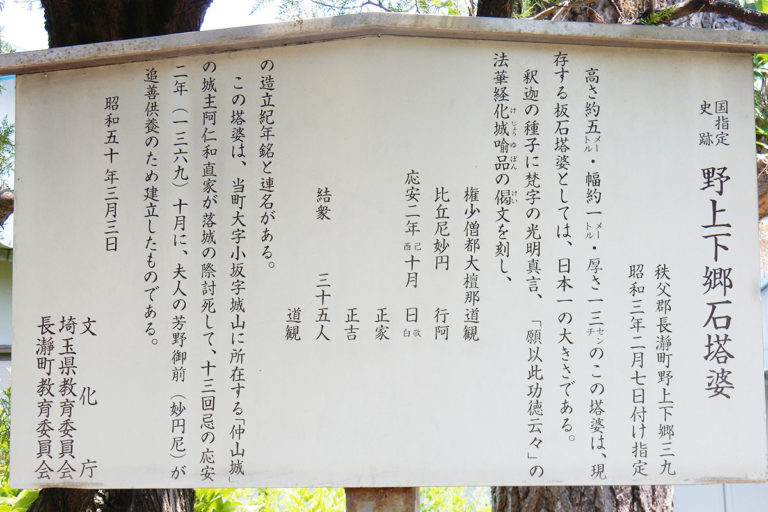 国指定
史跡
野上下郷石塔婆
秩父郡長瀞町野上下郷三九
昭和三年二月七日付け指定
高さ約五メートル・幅約一メートル・厚さ一三センチのこの塔婆は、現
存する板石塔婆としては、日本一の大きさである。
釈迦の種子に梵字の光明真言、「願以此功徳云々」の
法華経化城喩品の偈文を刻し、
けじょうゆぼん
げい
権少僧都大檀那道観
比丘尼妙円 行阿
応安二年己酉十月 日敬白
正家
正吉
結衆 三十五人
道観
の造立紀年銘と連名がある。
この塔婆は、当町大字小坂字城山に所在する「仲山城」
の城主阿仁和直家が落城の際討死して、十三回忌の応安
二年(一三六九)十月に、夫人の芳野御前(妙円尼)が
追善供養のため建立したものである。
昭和五十年三月三日
文化庁
埼玉県教育委員会
長瀞町教育委員会